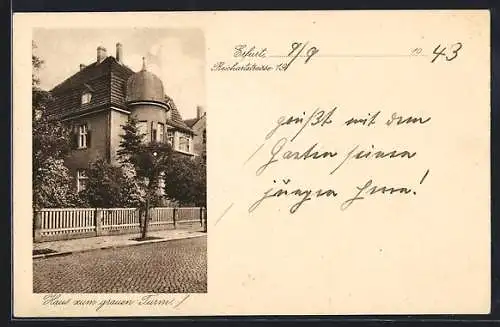 Erfurt, 8/9 1943
Reichartstrasse 13
grüßt mit dem
Garten seinen
jungen Herrn!
Haus zum grauen Turm